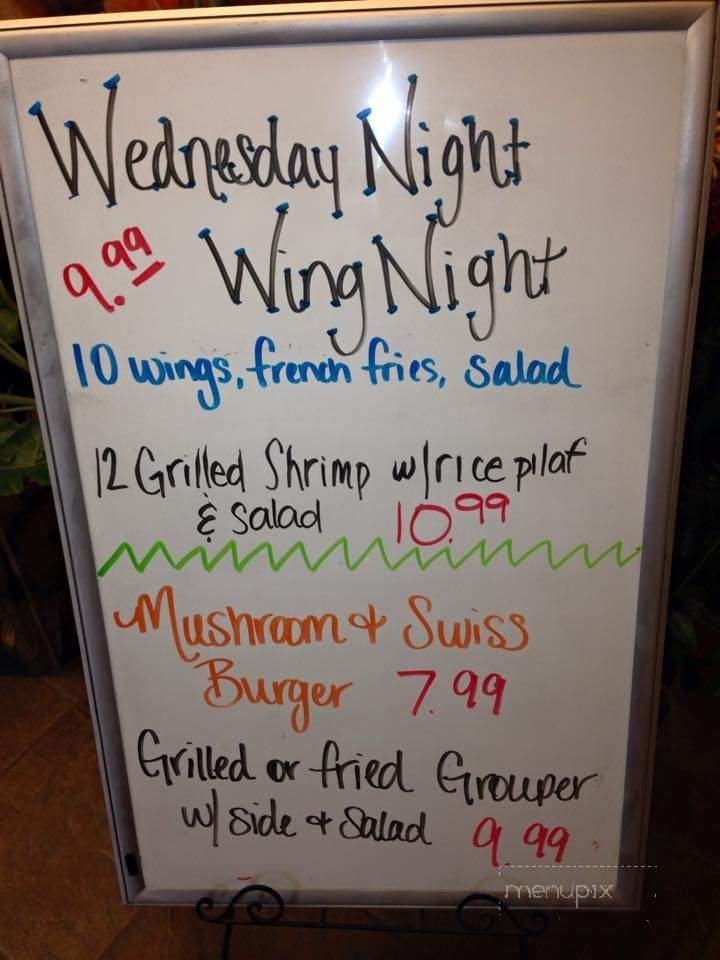 Wednesday Night
9.99 Wing Night
10 wings, french fries, salad
12 Grilled Shrimp w/rice pilaf
& salad 10.99
Mushroom & Swiss
Burger 7.99
Grilled or fried Grouper
w/ side & Salad 9.99
menupix